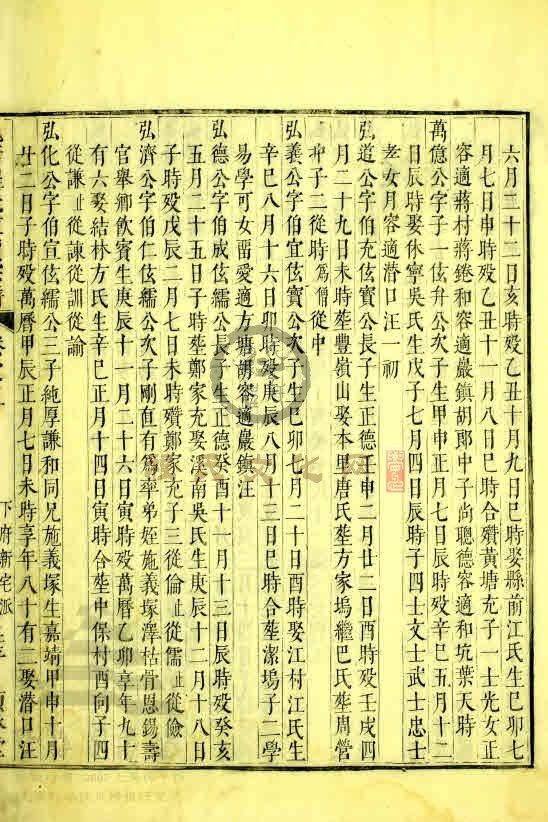 六月二十二日亥時歿乙丑十月九日巳時娶縣前江氏生巳卯七
月七日申時歿乙丑十一月八日巳時合殯黃塘充子一士光女正
容適蔣村蔣錈和容適巖鎮胡郎中子尚聰德容適和坑葉天時
萬億公字子一伭弁公次子生甲申正月七日辰時歿辛巳五月十二
日辰時娶休寧吳氏生戊子七月四日辰時子四士文士武士忠士
孝女月容適潛口汪一初
弘道公字伯充伭寳公長子生正德壬申二月廿二日酉時歿壬戌四
月二十九日未時塟豐嶺山娶本里唐氏塟方家塢繼巴氏塟周管
冲子二從時爲僧從中
弘義公字伯宜伭寳公次子生巳卯七月二十日酉時娶江村江氏生
辛巳八月十六日卯時歿庚辰八月十三日巳時合塟潔塢子二學
易學可女畱愛適方塘胡容適巖鎮汪
弘德公字伯成伭繻公長子生正德癸酉十一月十三日辰時歿癸亥
五月二十五日子時塟鄭家充娶溪南吳氏生庚辰十二月十八日
子時歿戊辰二月七日未時殯鄭家充子三從倫止從儒止從儉
弘濟公字伯仁伭繻公次子剛直有爲率弟姪施義塚澤枯骨恩錫壽
官舉鄉飲賓生庚辰十一月二十六日寅時歿萬曆乙卯享年九十
有六娶結林方氏生辛巳正月十四日寅時合塟中保村酉向子四
從謙止從諫從訓從諭
弘化公字伯宣伭繻公三子純厚謙和同兄施義塚生嘉靖甲申十月
廿二日子時歿萬曆甲辰正月七日未時享年八十有二娶潛口汪
下府新宅派